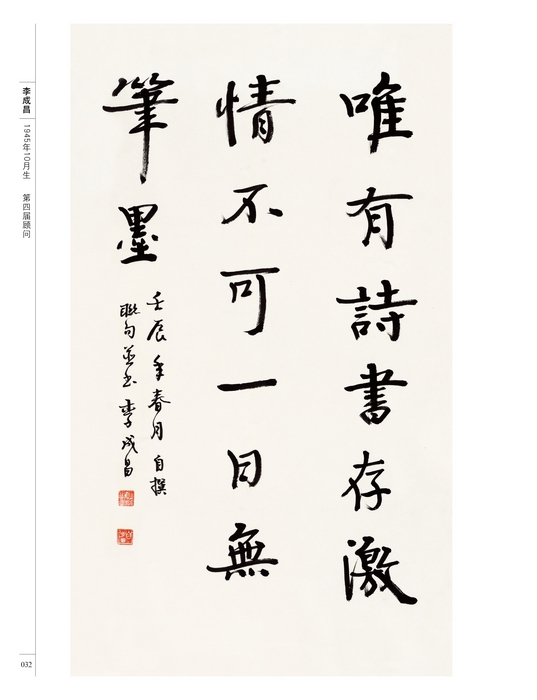 唯有詩書存激
情不可一日無
筆墨
壬辰年春月自撰
聯句並书李成昌
李成昌
1945年10月生 第四届顾问
032